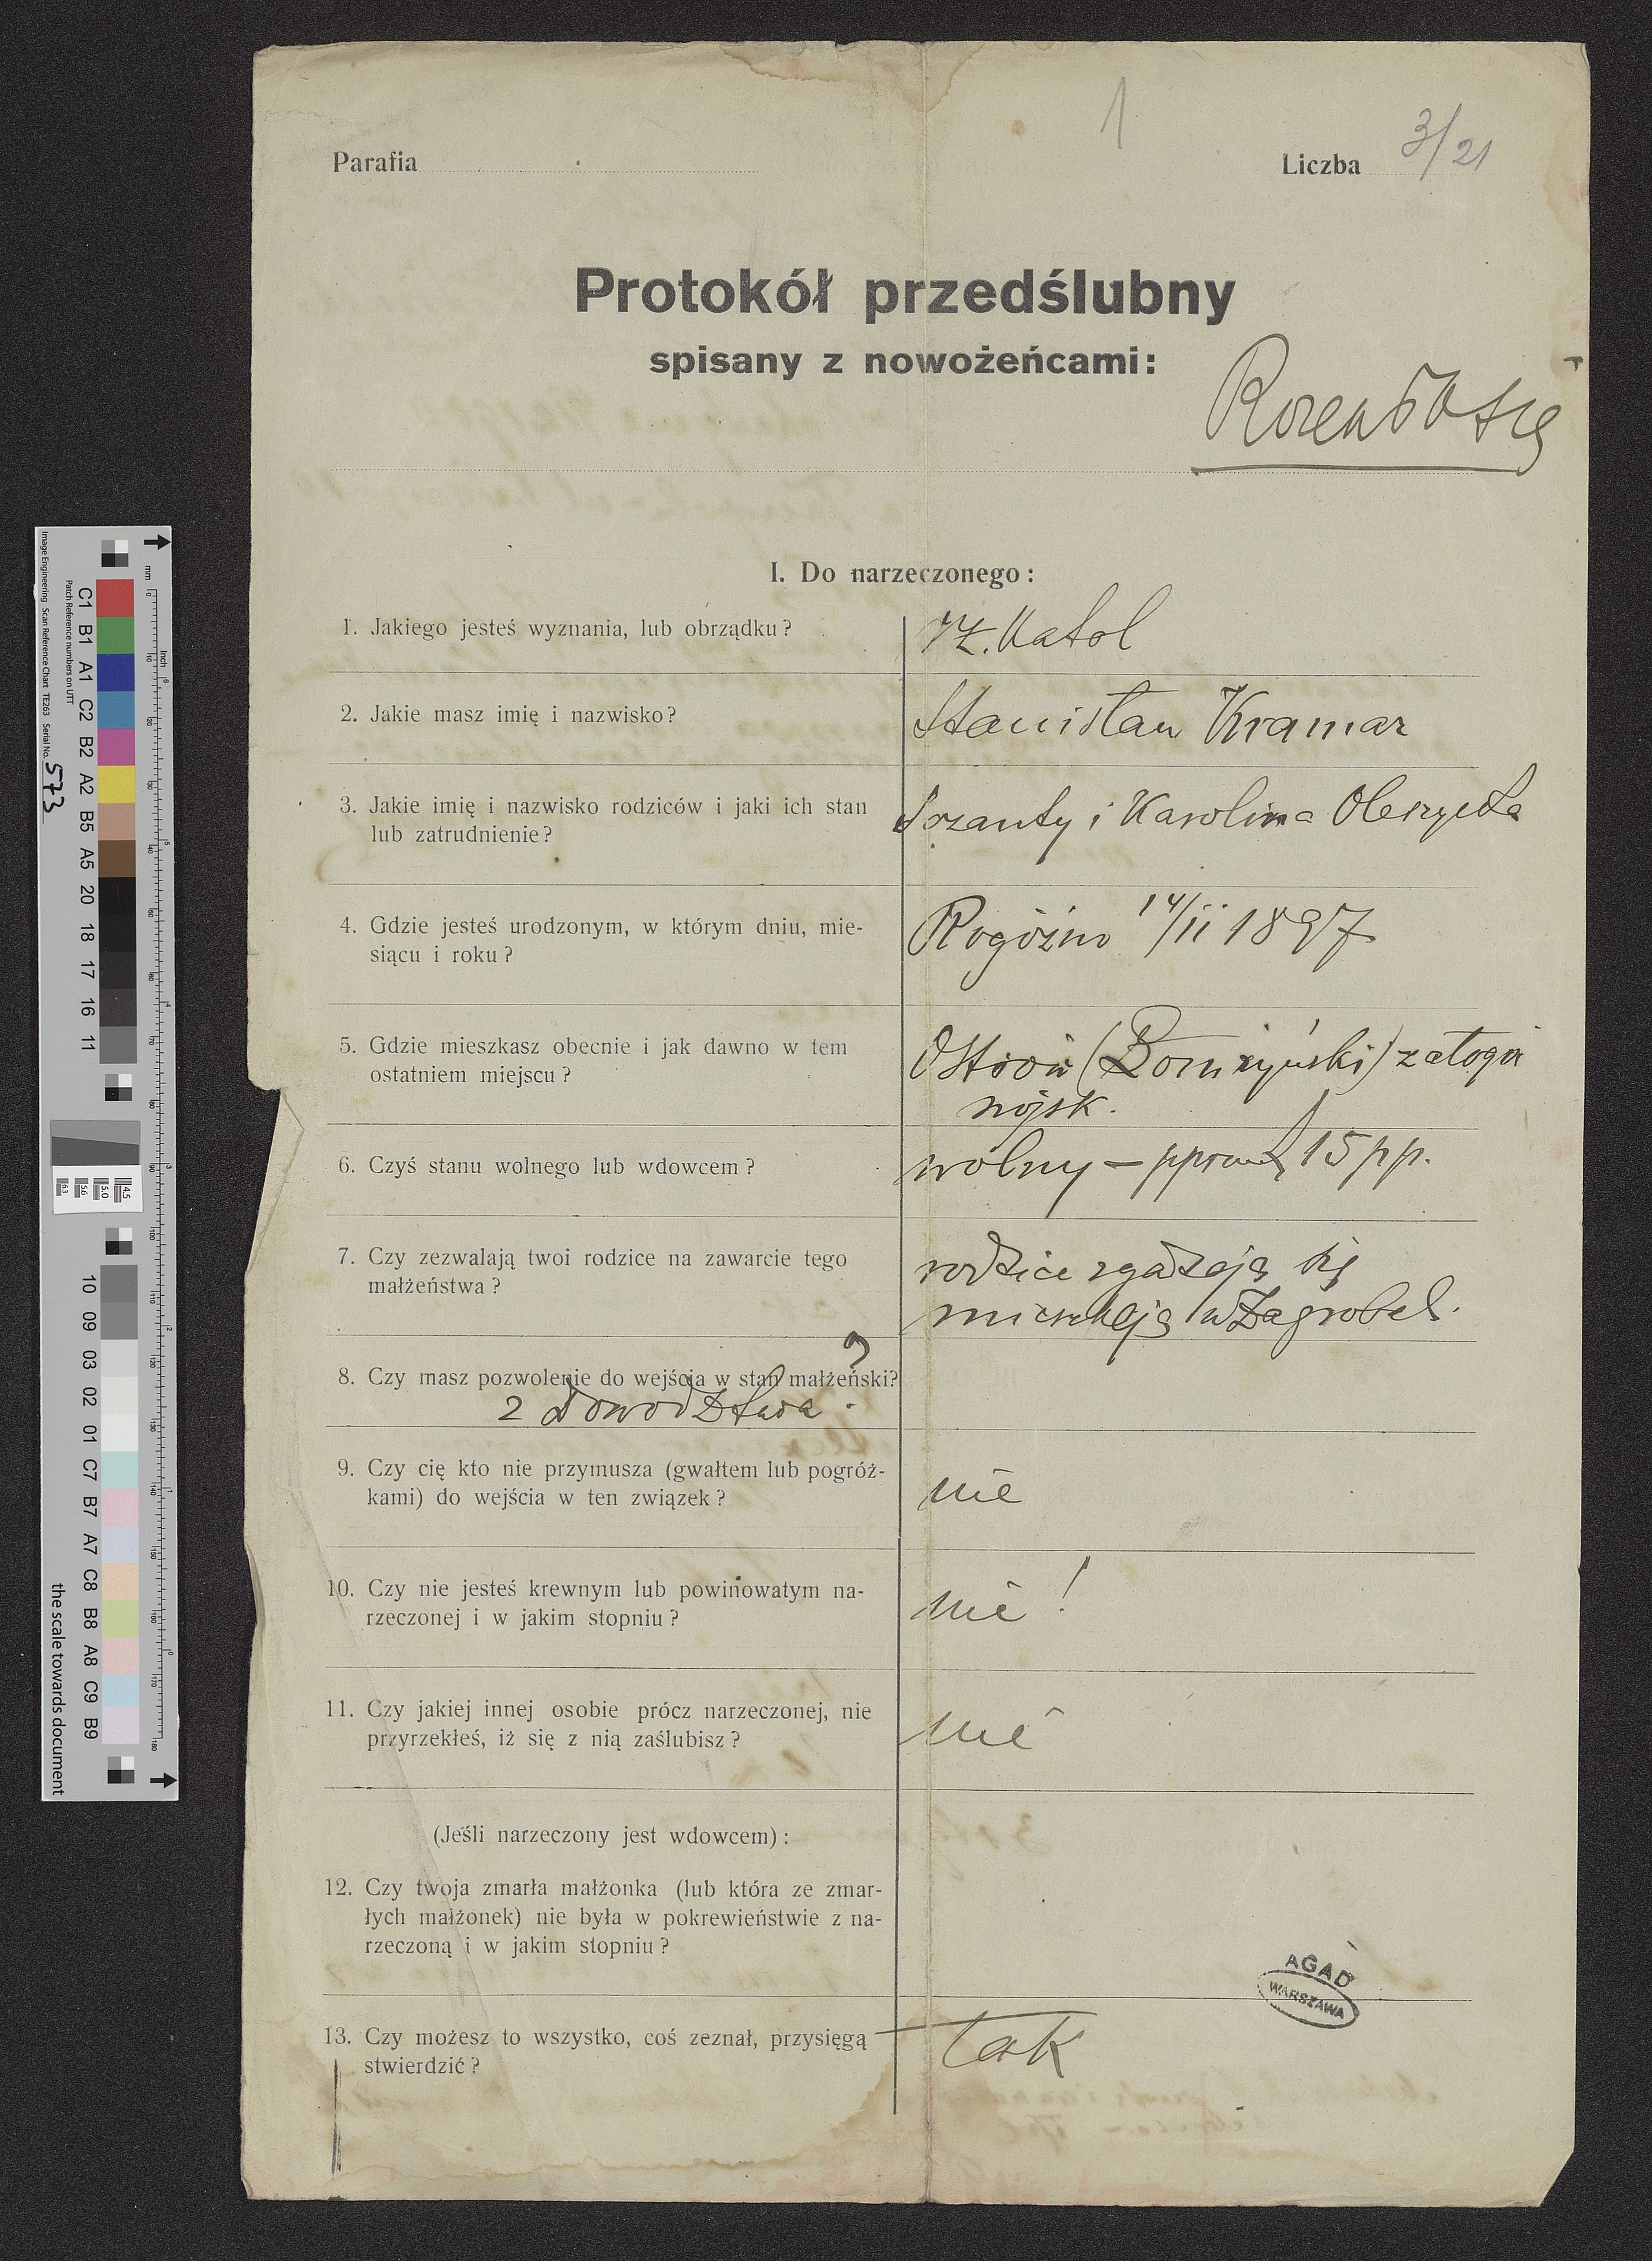 1
Parafia
Liczba 3/21
Protokół przedślubny
spisany z nowożeńcami:
I. Do narzeczonego:
1. Jakiego jesteś wyznania, lub obrządku?
rz. Katol
2. Jakie masz imię i nazwisko?
Stanisław Kramar
3. Jakie imię i nazwisko rodziców i jaki ich stan
lub zatrudnienie?
i Karolina
4. Gdzie jesteś urodzonym, w którym dniu, mie-
siącu i roku?
Rogóźno 14/II 1897
5. Gdzie mieszkasz obecnie i jak dawno w tem
ostatniem miejscu?
Ostrów (Łomżyński) załoga
wojsk.
6. Czyś stanu wolnego lub wdowcem?
wolny – 15 pp.
7. Czy zezwalają twoi rodzice na zawarcie tego
małżeństwa?
rodzice zgadzają się
mieszkają w Zagrobel.
8. Czy masz pozwolenie do wejścia w stan małżeński?
z dowództwa. ?
9. Czy cię kto nie przymusza (gwałtem lub pogróż-
kami) do wejścia w ten związek?
nie
10. Czy nie jesteś krewnym lub powinowatym na-
rzeczonej i w jakim stopniu?
nie!
11. Czy jakiej innej osobie prócz narzeczonej, nie
przyrzekłeś, iż się z nią zaślubisz?
nie
(Jeśli narzeczony jest wdowcem):
12. Czy twoja zmarła małżonka (lub która ze zmar-
łych małżonek) nie była w pokrewieństwie z na-
rzeczoną i w jakim stopniu?
AGAD
WARSZAWA
13. Czy możesz to wszystko, coś zeznał, przysięgą
stwierdzić?
Tak
Image Engineering Scan Reference Chart TE263 Serial No. 573
Patch Reference numbers on UTT
C1 B1 A1 C2 B2 A2 B5 A5 20 18 17 16 11
10 09 03 02 01 C7 B7 A7 C8 B8 A8 C9 B9
the scale towards document